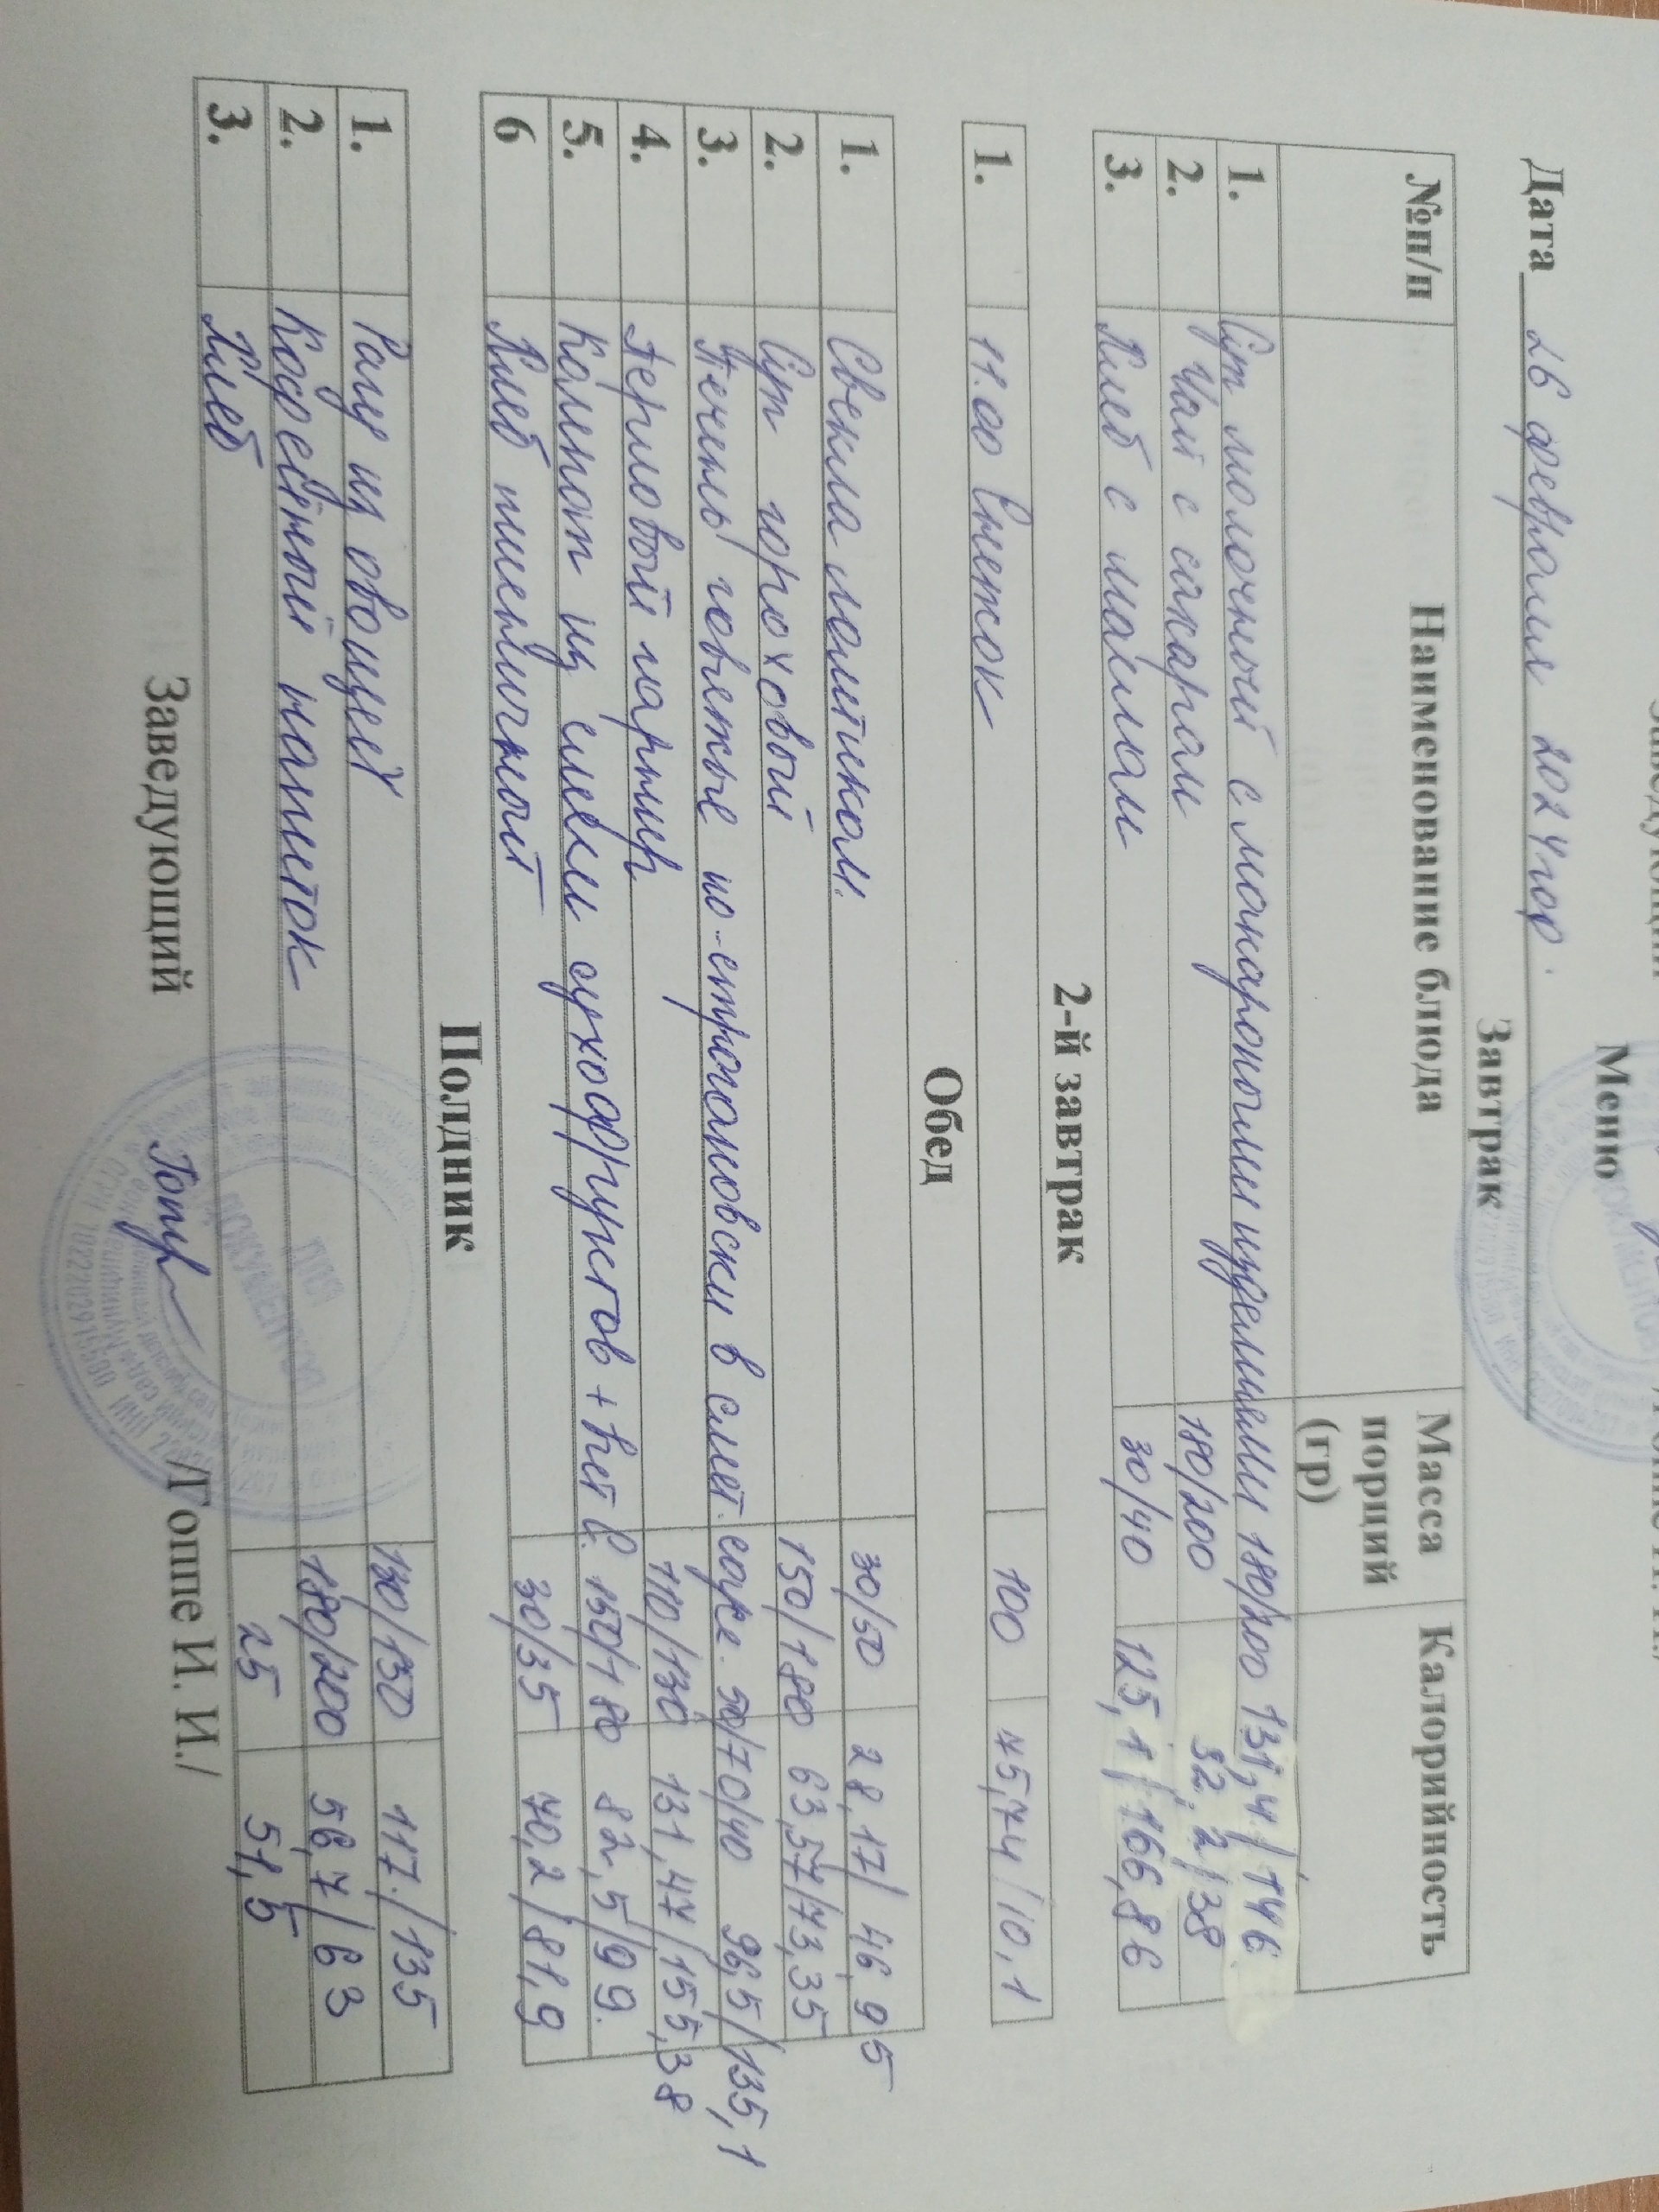 Меню
Дата 26 февраля 2024год.
Завтрак
№п/п Наименование блюда Масса порций (гр) Калорийность
1. Суп молочный с макаронными изделиями 180/200 131,4/146
2. Чай с сахаром 180/200 32,2/38
3. Хлеб с маслом 30/40 125,1/166,86
2-й завтрак
1. 11.00 Снежок 100 75,74/10,1
Обед
1. Свекла ломтиком. 30/50 28,17/46,95
2. Суп гороховый 150/180 63,57/73,35
3. Печень говяжье по-строгановски в смет. соусе. 50/70/40 96,5/135,1
4. Перловый гарнир 110/130 131,47/155,38
5. Компот из смеси сухофруктов + вит С. 150/180 82,5/99.
6 Хлеб пшеничный 30/35 70,2/81,9
Полдник
1. Рагу из овощей 130/150 117/135
2. Кофейный напиток 180/200 56,7/63
3. Хлеб 25 51,5
Заведующий /Гоппе И. И./
ДЛЯ ДОКУМЕНТОВ